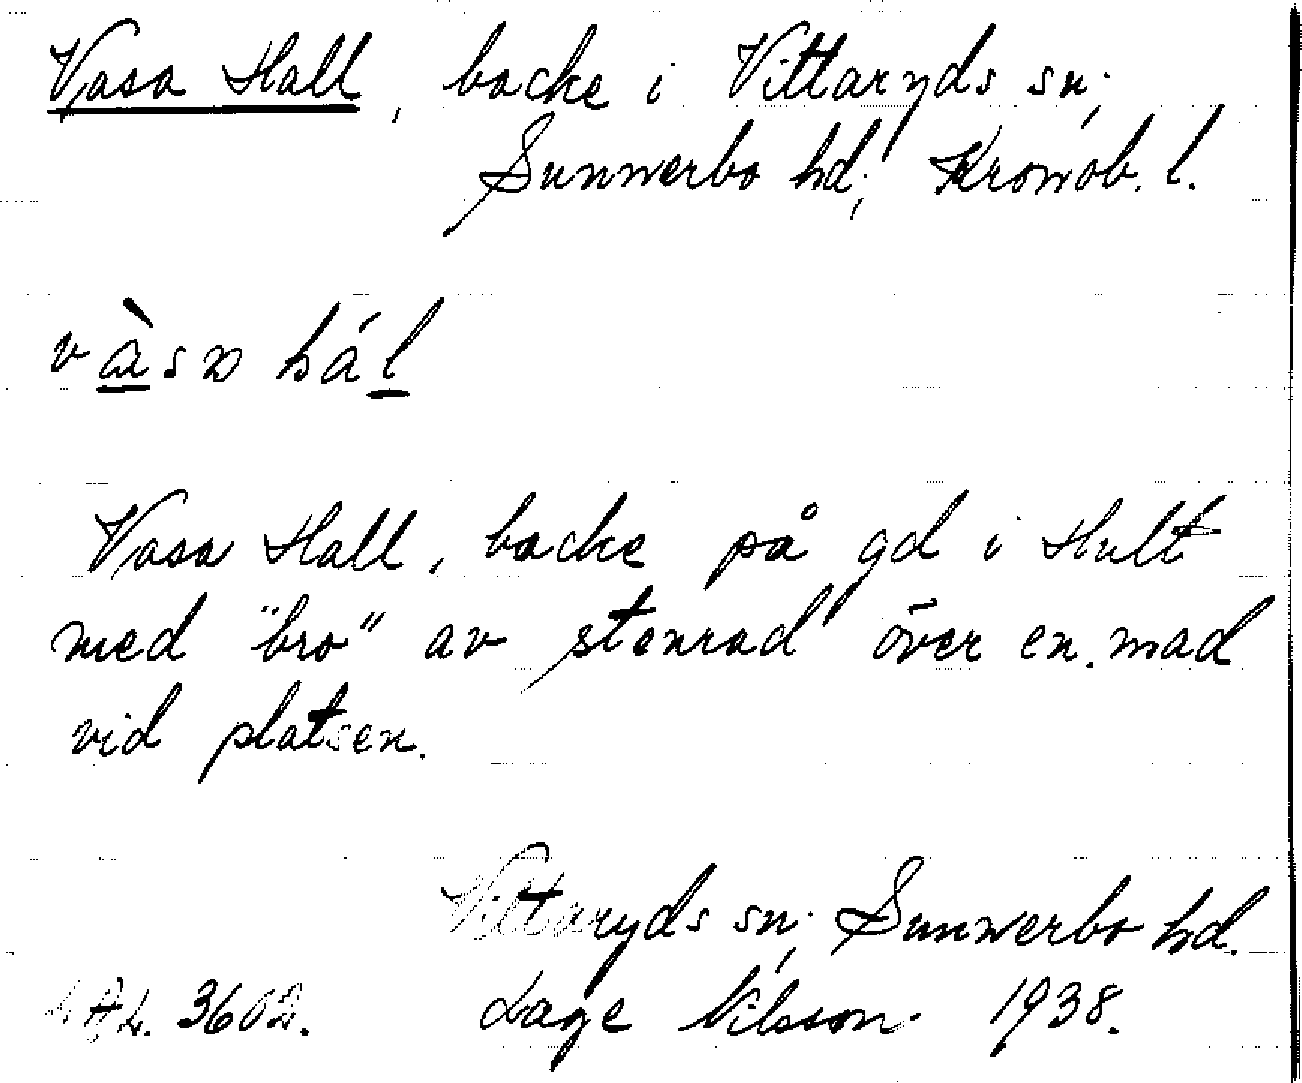 Vasa Hall, backe i Vittaryds sn;
Sunnerbo hd; Kronob. l.
Vasa Hall, backe på gd i Hult
med "bro" av stenrad över en mad
vid platsen.
Vittaryds sn; Sunnerbo hd.
LAL. 3602. Lage Nilsson. 1938.